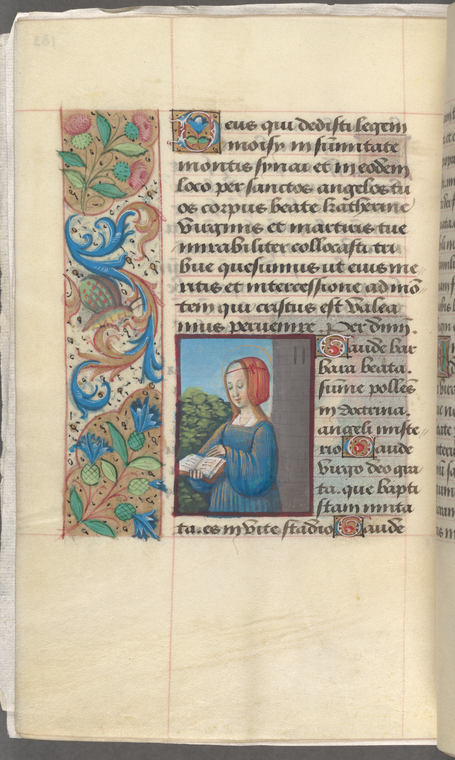 Deus qui dedisti legem
moisy in sumitate
montis synai et in eodem
loco per sanctos angelos tu
os corpus beate katherine
virginis et martiris tue
mirabiliter collocasti tri
bue quesumus ut eius me
ritis et intercessione ad mō
tem qui cristus est valea
mus pervenire. Per dnm.
Gaude bar
bara beata.
sūme pollēs
in doctrina.
angeli miste
rio Gaude
virgo deo gra
ta. que bapti
stam imita
ta. es in vite stadio Gaude